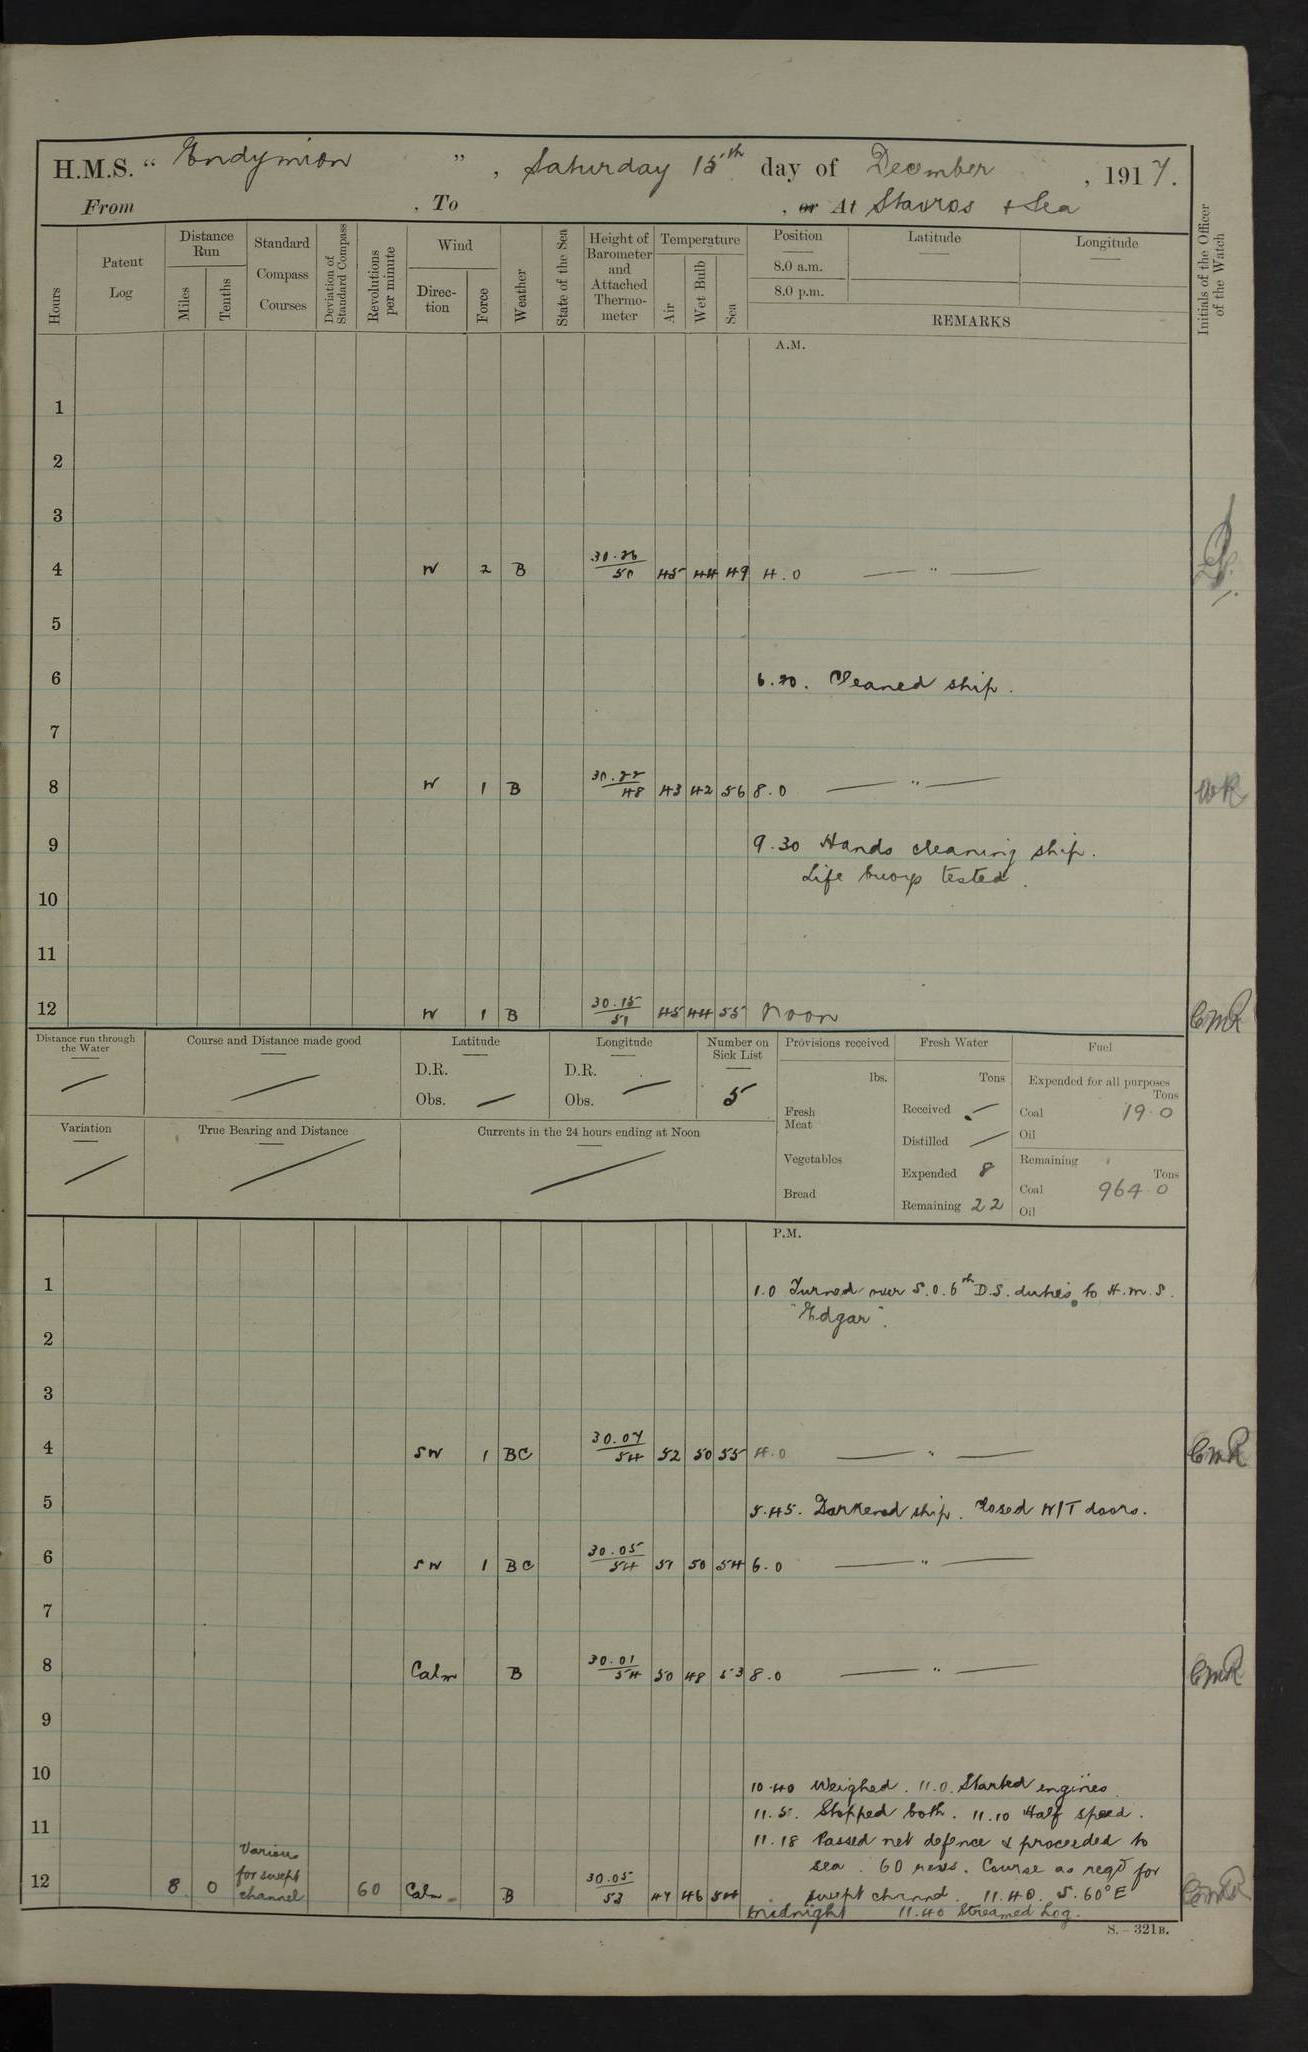 H.M.S. "Endymion", Saturday 15th day of December, 1917.
From , To , or At Stavros & Sea
Hours
Patent Log
Distance Run
Miles
Tenths
Standard Compass Courses
Deviation of Standard Compass
Revolutions per minute
Wind
Direction
Force
Weather
State of the Sea
Height of Barometer and Attached Thermometer
Temperature
Air
Wet Bulb
Sea
Position
8.0 a.m.
8.0 p.m.
Latitude
Longitude
REMARKS
Initials of the Officer of the Watch
A.M.
1
2
3
4 W 2 B 30.26/50 45 44 49 4.0 — " —
5
6 6.20. Cleaned ship.
7
8 W 1 B 30.22/48 43 42 56 8.0 — " —
9 9.30 Hands cleaning ship.
Life buoys tested.
10
11
12 W 1 B 30.15/51 45 44 55 Noon CMR
Distance run through the Water
Course and Distance made good
Latitude
D.R.
Obs. —
Longitude
D.R.
Obs. —
Number on Sick List
5
Provisions received
lbs.
Fresh Meat
Vegetables
Bread
Fresh Water
Tons
Received —
Distilled —
Expended 8
Remaining 22
Fuel
Expended for all purposes
Tons
Coal 19.0
Oil
Remaining
Tons
Coal 964.0
Oil
Variation
True Bearing and Distance
Currents in the 24 hours ending at Noon
P.M.
1 1.0 Turned over S.O. 6th D.S. duties to H.M.S.
"Edgar".
2
3
4 SW 1 BC 30.07/54 52 50 55 4.0 — " — CMR
5 5.45. Darkened ship. Closed W/T doors.
6 SW 1 BC 30.05/54 51 50 54 6.0 — " —
7
8 Calm B 30.01/54 50 48 53 8.0 — " — CMR
9
10 10.40 Weighed. 11.0. Started engines
11.5. Stopped both. 11.10 Half speed.
11 11.18 Passed net defence & proceeded to
sea. 60 revs. Course as reqd for
12 8 0 Various for swept channel 60 Calm B 30.05/53 47 46 54 swept channel. 11.40. S.60°E CMR
Midnight 11.40 Streamed Log.
S.—321B.